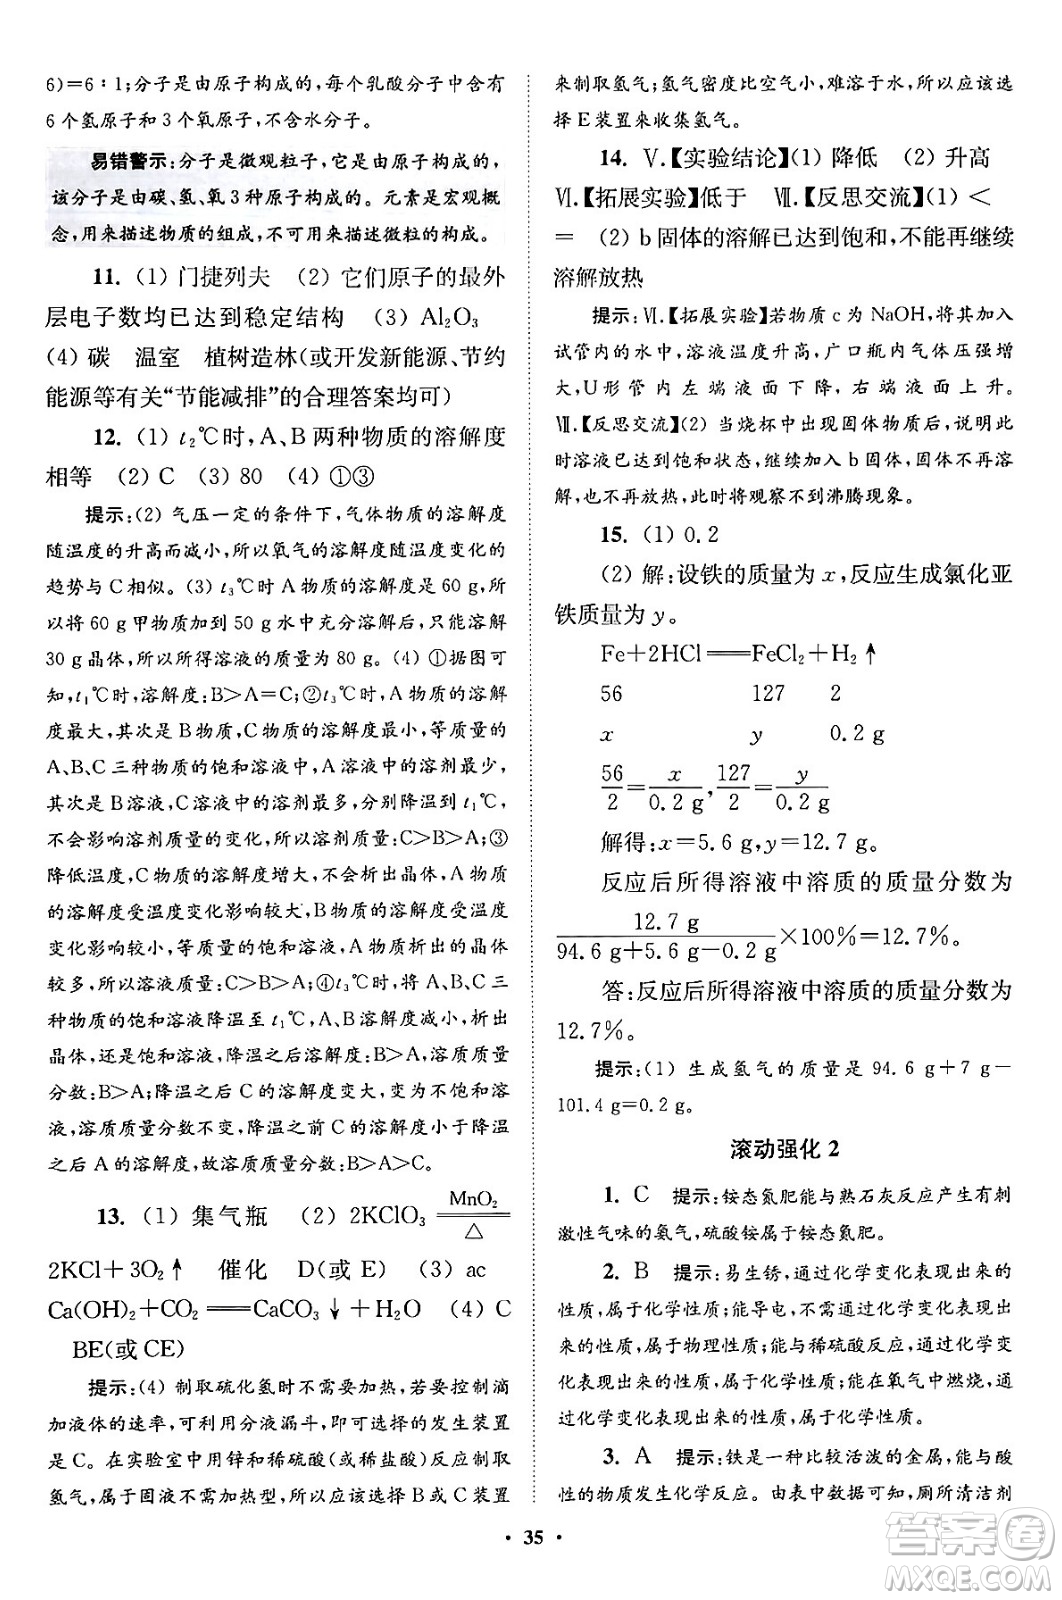 6)=6∶1;分子是由原子构成的,每个乳酸分子中含有
6个氢原子和3个氧原子,不含水分子。
易错警示:分子是微观粒子,它是由原子构成的,
该分子是由碳、氢、氧3种原子构成的。元素是宏观概
念,用来描述物质的组成,不可用来描述微粒的构成。
11. (1) 门捷列夫 (2) 它们原子的最外
层电子数均已达到稳定结构 (3) Al₂O₃
(4) 碳 温室 植树造林(或开发新能源、节约
能源等有关“节能减排”的合理答案均可)
12. (1) t₂℃时,A、B两种物质的溶解度
相等 (2) C (3) 80 (4) ①③
提示:(2) 气压一定的条件下,气体物质的溶解度
随温度的升高而减小,所以氧气的溶解度随温度变化的
趋势与C相似。(3) t₃℃时A物质的溶解度是60 g,所
以将60 g甲物质加到50 g水中充分溶解后,只能溶解
30 g晶体,所以所得溶液的质量为80 g。(4) ①据图可
知,t₁℃时,溶解度:B>A=C;②t₃℃时,A物质的溶解
度最大,其次是B物质,C物质的溶解度最小,等质量的
A、B、C三种物质的饱和溶液中,A溶液中的溶剂最少,
其次是B溶液,C溶液的溶剂最多,分别降温到t₁℃,
不会影响溶剂质量的变化,所以溶剂质量:C>B>A;③
降低温度,C物质的溶解度增大,不会析出晶体,A物质
的溶解度受温度变化影响较大,B物质的溶解度受温度
变化影响较小,等质量的饱和溶液中,A物质析出的晶体
较多,所以溶液质量:C>B>A;④t₃℃时,将A、B、C三
种物质的饱和溶液降温至t₁℃,A、B溶解度减小,析出
晶体,还是饱和溶液,降温之后溶解度:B>A,溶质质量
分数:B>A;降温之后C的溶解度变大,变为不饱和溶
液,溶质质量分数不变,降温之前C的溶解度小于降温
之后A的溶解度,故溶质质量分数:B>A>C。
13. (1) 集气瓶 (2) 2KClO₃ MnO₂ ══ △
2KCl+3O₂↑ 催化 D(或E) (3) ac
Ca(OH)₂+CO₂══CaCO₃↓+H₂O (4) C
BE(或CE)
提示:(4) 制取硫化氢时不需要加热,若要控制滴
加液体的速率,可利用分液漏斗,即可选择的发生装置
是C。在实验室中用锌和稀硫酸(或稀盐酸)反应制取
氢气,属于固液不需加热型,所以选择B或C装置
来制取氢气;氢气密度比空气小,难溶于水,所以应该选
择E装置来收集氢气。
14. Ⅴ.【实验结论】(1) 降低 (2) 升高
Ⅵ.【拓展实验】 Ⅶ.【反思交流】(1) <
= (2) b固体的溶解已达到饱和,不能再继续
溶解放热
提示:Ⅵ.【拓展实验】若物质c为NaOH,将其加入
试管内的水中,溶液温度升高,广口瓶内气体压强增
大,U形管内左端液面下降,右端液面上升。
Ⅶ.【反思交流】(2) 当烧杯中出现固体物质后,说明此
时溶液已达到饱和状态,继续加入b固体,固体不再溶
解,也不再放热,此时将观察不到沸腾现象。
15. (1) 0.2
(2) 解:设铁的质量为x,反应生成氯化亚
铁质量为y。
Fe+2HCl══FeCl₂+H₂↑
56 127 2
x y 0.2 g
56/2=x/0.2 g,127/2=y/0.2 g
解得:x=5.6 g,y=12.7 g。
反应后所得溶液中溶质的质量分数为
12.7 g/(94.6 g+5.6 g−0.2 g)×100%=12.7%。
答:反应后所得溶液中溶质的质量分数为
12.7%。
提示:(1) 生成氢气的质量是94.6 g+7 g−
101.4 g=0.2 g。
滚动强化2
1. C 提示:铵态氮肥能与熟石灰反应产生有刺
激性气味的氨气,硫酸铵属于铵态氮肥。
2. B 提示:易生锈,通过化学变化表现出来的
性质,属于化学性质;能导电,不需通过化学变化表现出
来的性质,属于物理性质;能与稀硫酸反应,通过化学变
化表现出来的性质,属于化学性质;能在氧气中燃烧,通
过化学变化表现出来的性质,属于化学性质。
3. A 提示:铁是一种比较活泼的金属,能与酸
性的物质发生化学反应。由表中数据可知,厕所清洁剂
• 35 •
答案卷